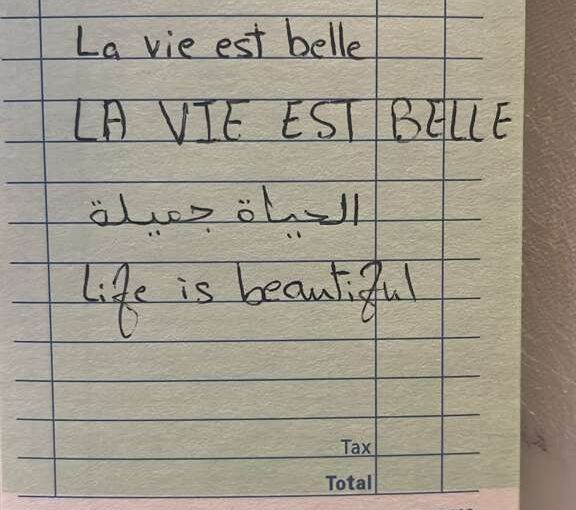 La vie est belle
LA VIE EST BELLE
الحياة جميلة
Life is beautiful
Tax
Total